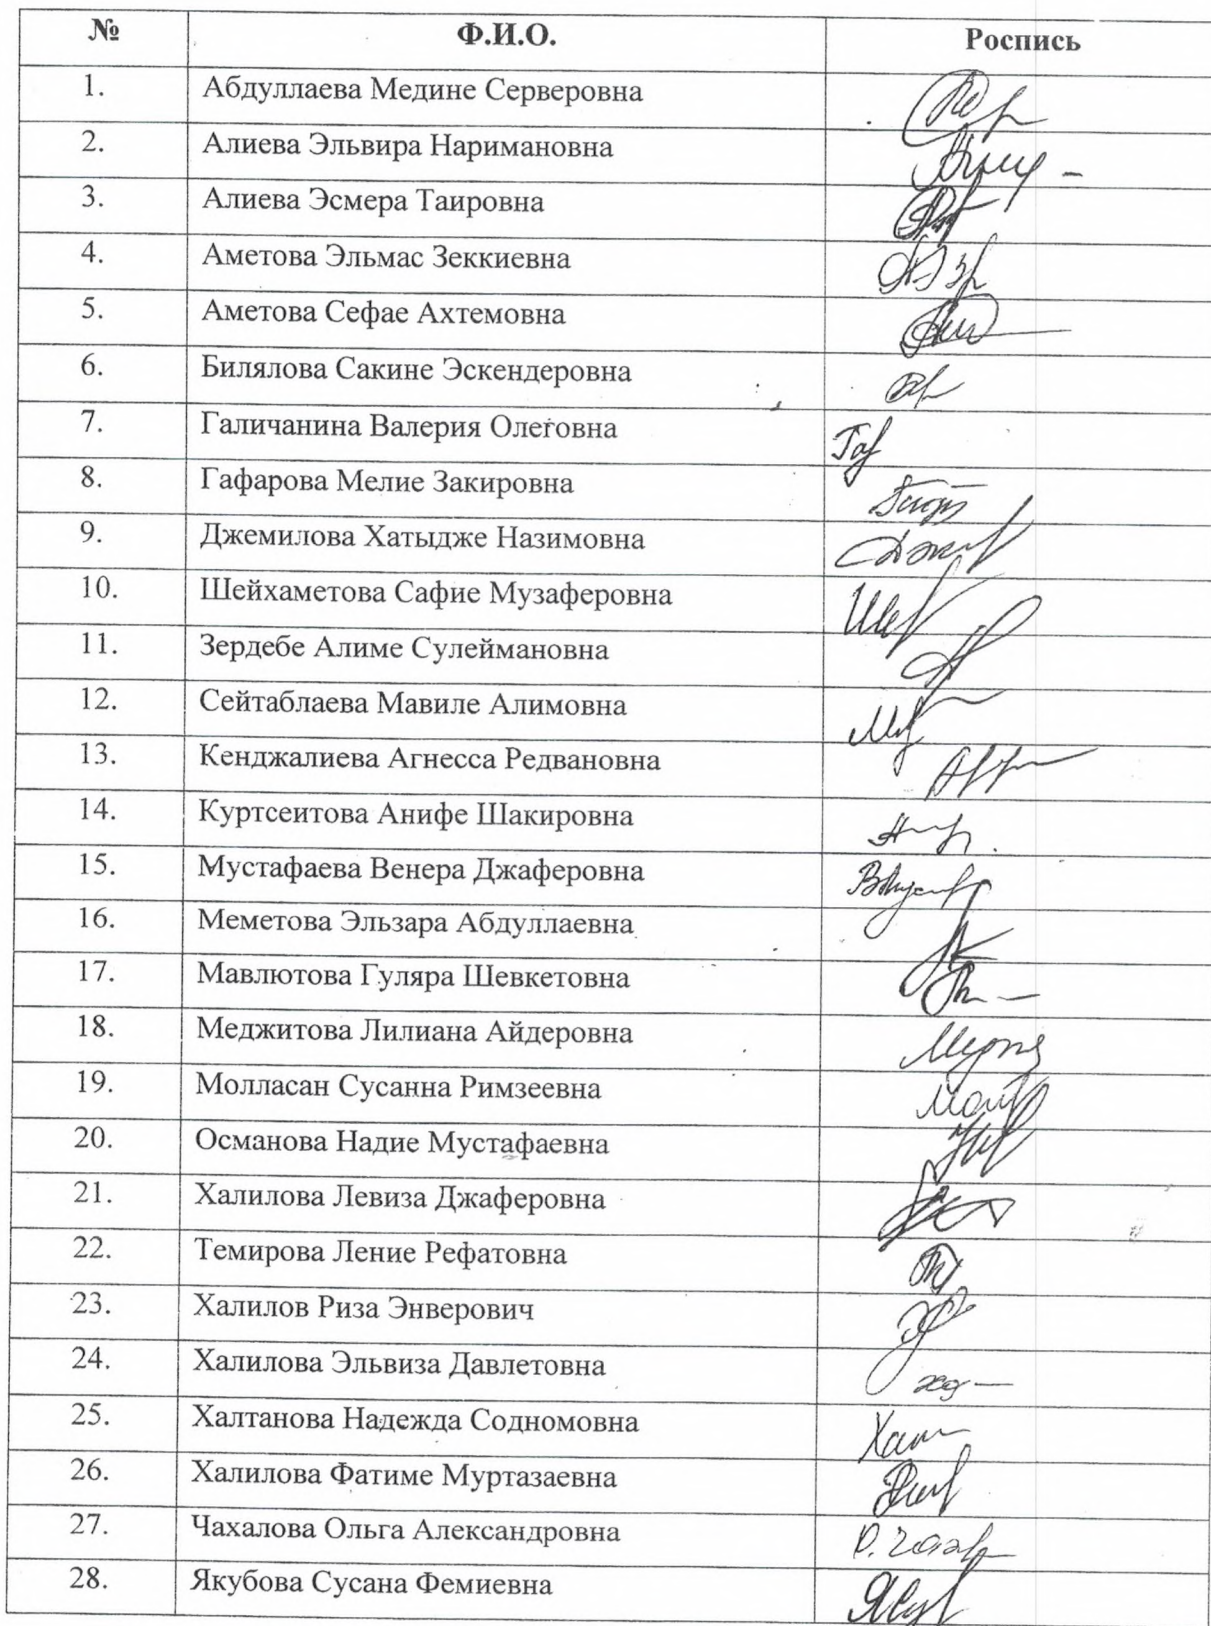 № Ф.И.О. Роспись
1. Абдуллаева Медине Серверовна
2. Алиева Эльвира Наримановна
3. Алиева Эсмера Таировна
4. Аметова Эльмас Зеккиевна
5. Аметова Сефае Ахтемовна
6. Билялова Сакине Эскендеровна
7. Галичанина Валерия Олеговна
8. Гафарова Мелие Закировна
9. Джемилова Хатыдже Назимовна
10. Шейхаметова Сафие Музаферовна
11. Зердебе Алиме Сулеймановна
12. Сейтаблаева Мавиле Алимовна
13. Кенджалиева Агнесса Редвановна
14. Куртсеитова Анифе Шакировна
15. Мустафаева Венера Джаферовна
16. Меметова Эльзара Абдуллаевна
17. Мавлютова Гуляра Шевкетовна
18. Меджитова Лилиана Айдеровна
19. Молласан Сусанна Римзеевна
20. Османова Надие Мустафаевна
21. Халилова Левиза Джаферовна
22. Темирова Ление Рефатовна
23. Халилов Риза Энверович
24. Халилова Эльвиза Давлетовна
25. Халтанова Надежда Содномовна
26. Халилова Фатиме Муртазаевна
27. Чахалова Ольга Александровна
28. Якубова Сусана Фемиевна